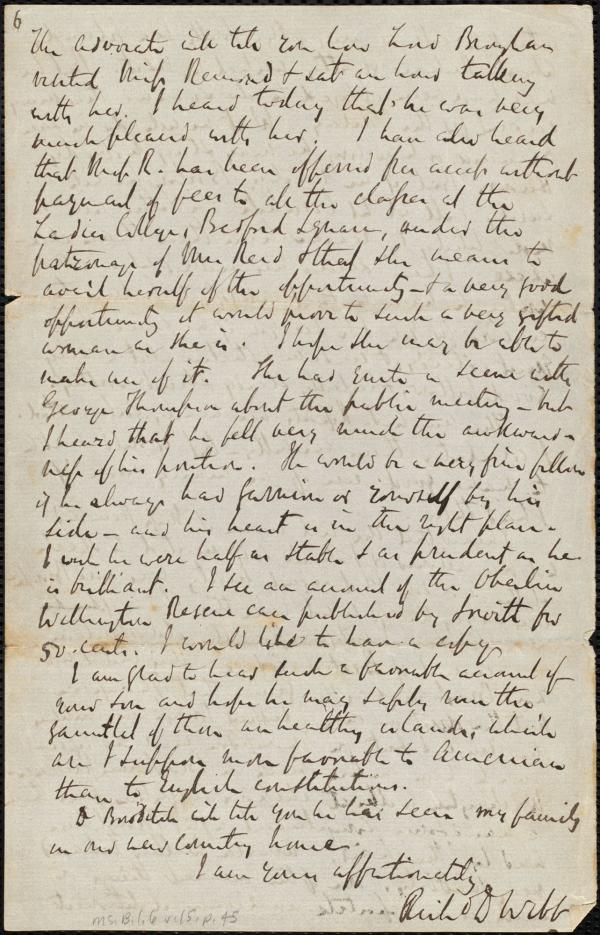 6
The Advocate will tell you how Lord Brougham
visited Miss Remond & sat an hour talking
with her. I heard today that he was very
much pleased with her. I have also heard
that Miss R. has been offered free access without
payment of fees to all the classes at the
Ladies College, Bedford Square, under the
patronage of Mrs Reid & that she means to
avail herself of the opportunity - & a very good
opportunity it would prove to such a very gifted
woman as she is. I hope she may be able to
make use of it. She had quite a scene with
George Thompson about the public meeting - but
I heard that he felt very much the awkward-
ness of his position. He would be a very fine fellow
if he always had Garrison or yourself by his
side - and his heart is in the right place.
I wish he were half as stable & as prudent as he
is brilliant. I see an account of the Oberlin
Wellington Rescue case published by Jewett for
50 cents. I would like to have a copy
I am glad to hear such a favorable account of
your son and hope he may safely run the
gauntlet of those unhealthy islands, which
are I suppose more favorable to American
than to English constitutions.
Dr Bowditch will tell you he has seen my family
in our new country home.
I am yours affectionately
Richd D Webb
Ms. B.1.6 v.15, p. 45